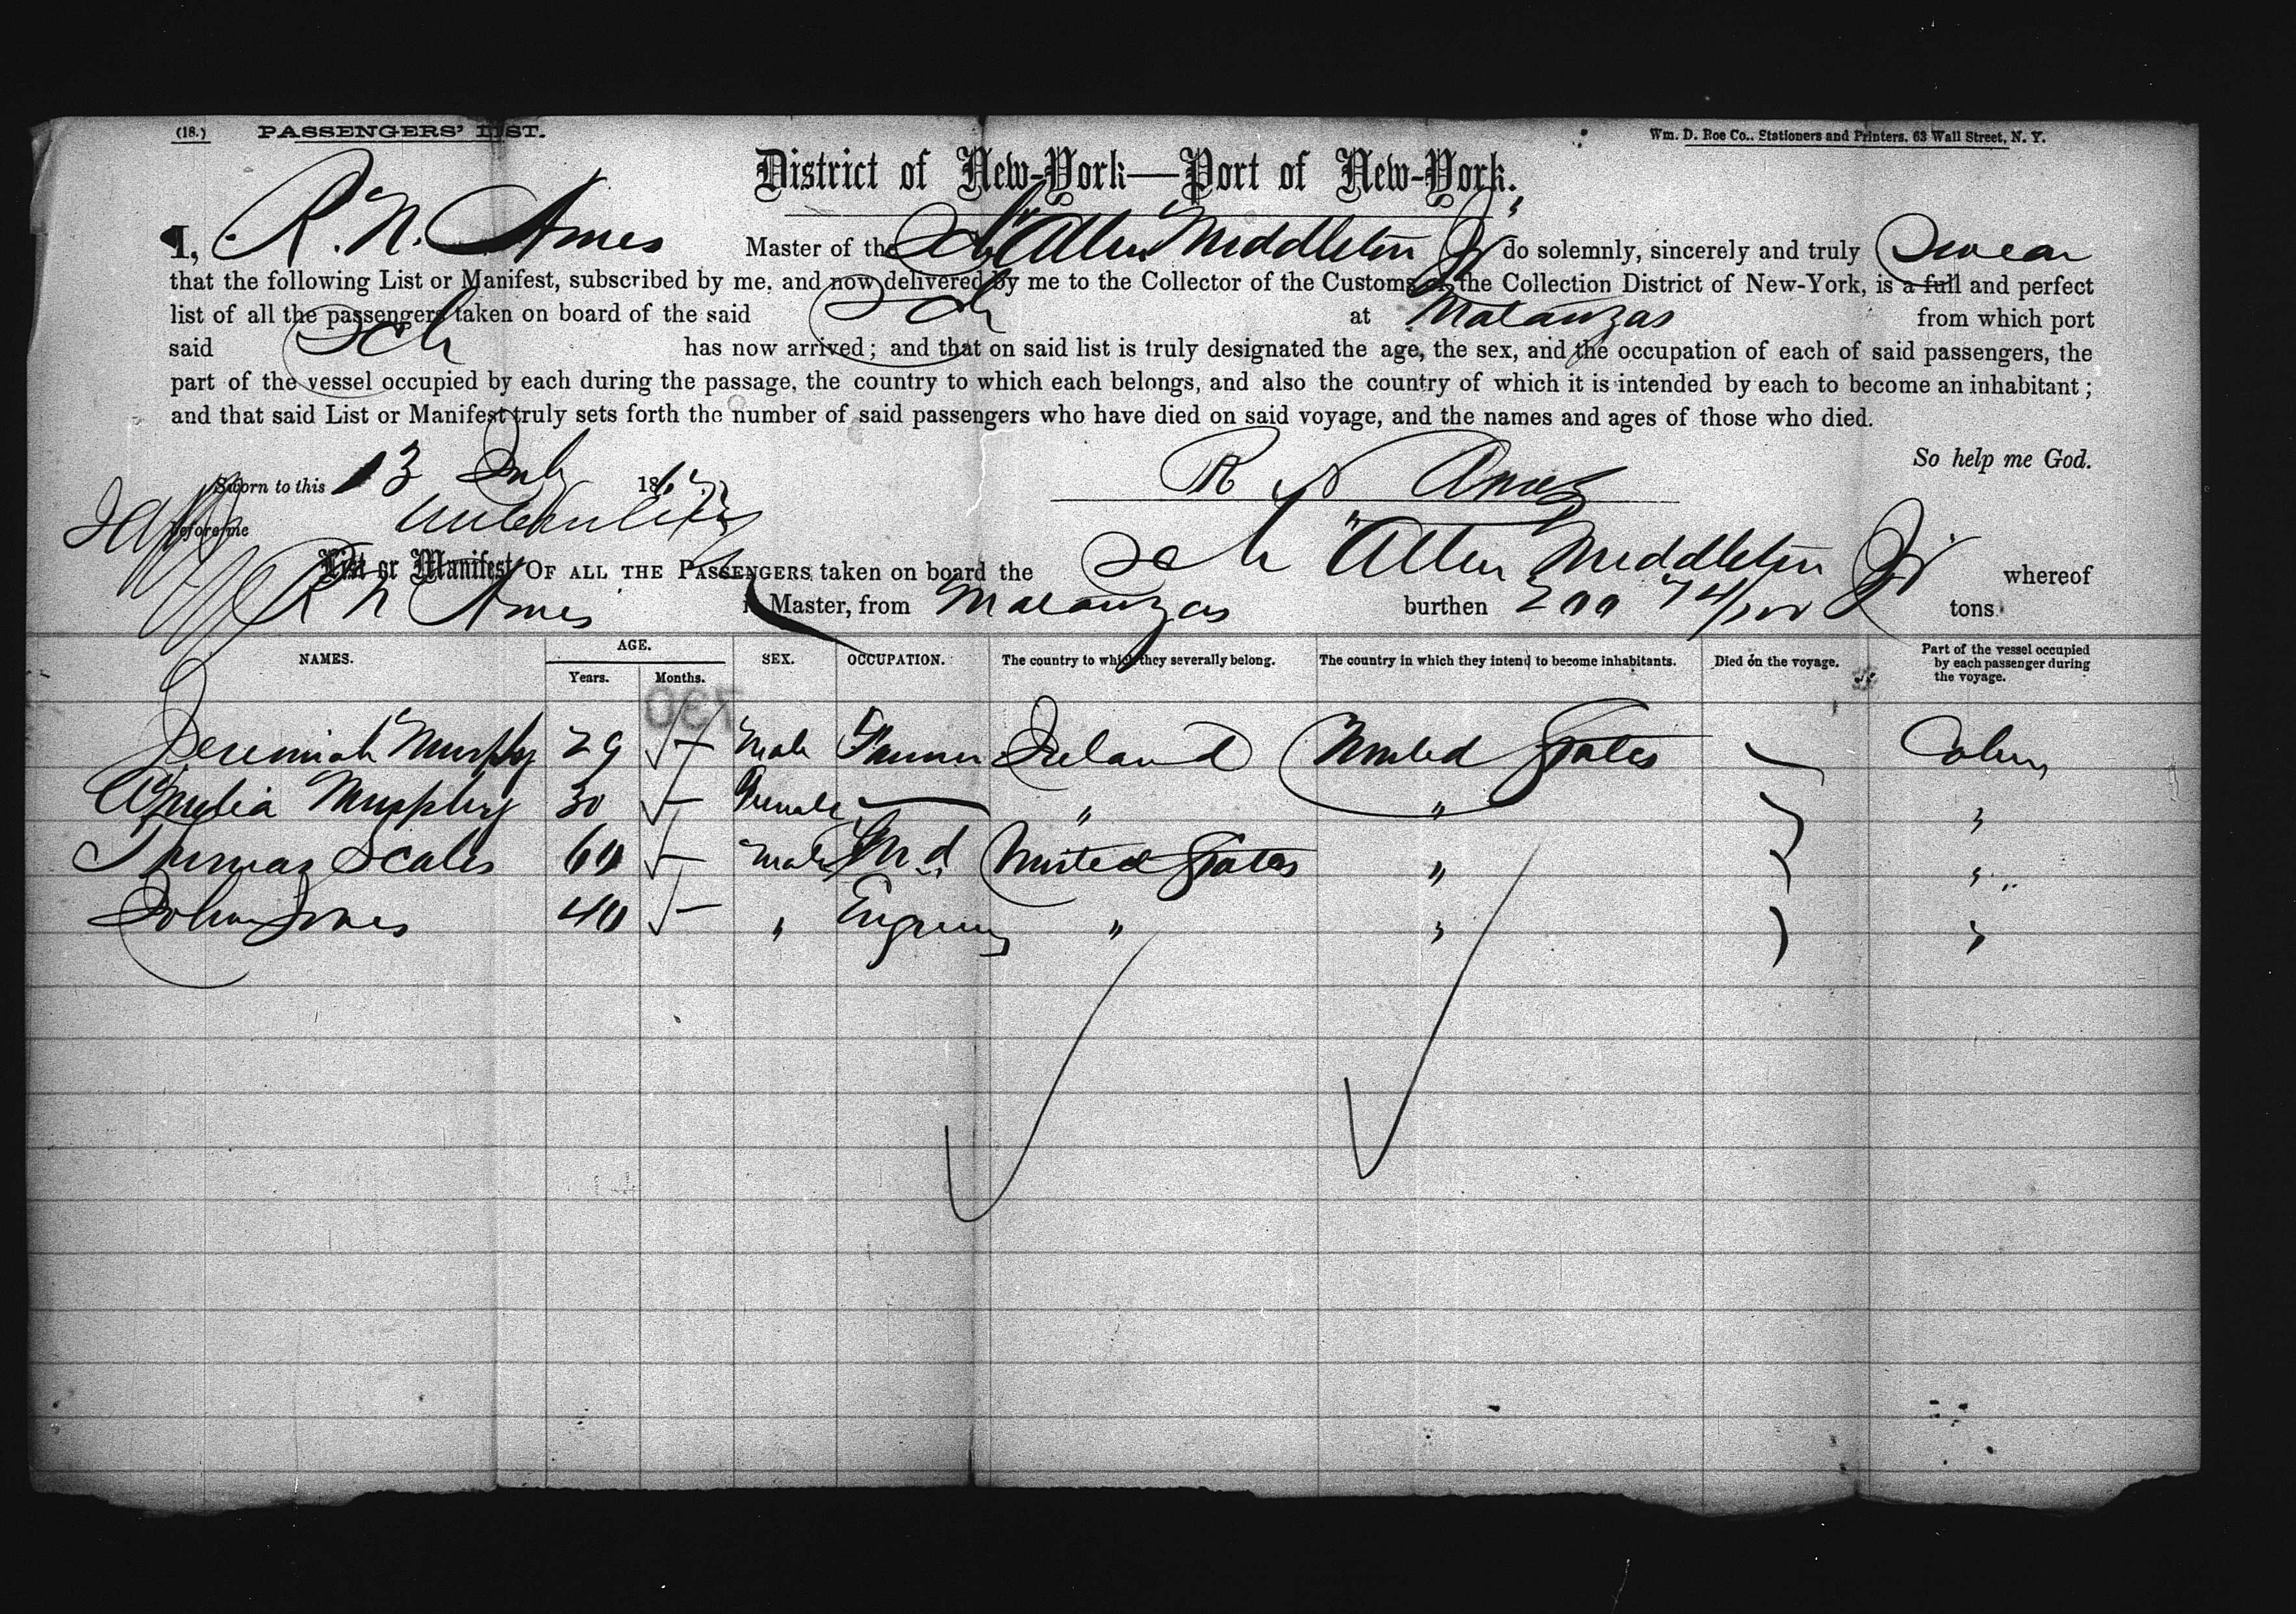 (18.) PASSENGERS' LIST.
Wm. D. Roe Co., Stationers and Printers, 63 Wall Street, N. Y.
District of New-York—Port of New-York.
I, R. N. Ames Master of the Sch "Allen Middleton Jr" do solemnly, sincerely and truly swear
that the following List or Manifest, subscribed by me, and now delivered by me to the Collector of the Customs of the Collection District of New-York, is a full and perfect
list of all the passengers taken on board of the said Sch at Matanzas from which port
said Sch has now arrived; and that on said list is truly designated the age, the sex, and the occupation of each of said passengers, the
part of the vessel occupied by each during the passage, the country to which each belongs, and also the country of which it is intended by each to become an inhabitant;
and that said List or Manifest truly sets forth the number of said passengers who have died on said voyage, and the names and ages of those who died.
So help me God.
Sworn to this 13 July 18
R N Ames
Before me
List or Manifest OF ALL THE PASSENGERS taken on board the Sch "Allen Middleton Jr whereof
R N Ames is Master, from Matanzas burthen tons.
NAMES. AGE. Years. Months. SEX. OCCUPATION. The country to which they severally belong. The country in which they intend to become inhabitants. Died on the voyage. Part of the vessel occupied by each passenger during the voyage.
Jeremiah Murphy 29 - Male Ireland United States Cabin
Murphy 30 - Female — " " "
Thomas Scales 60 - Male M.d United States " "
John Jones 40 - " Engineer " " "